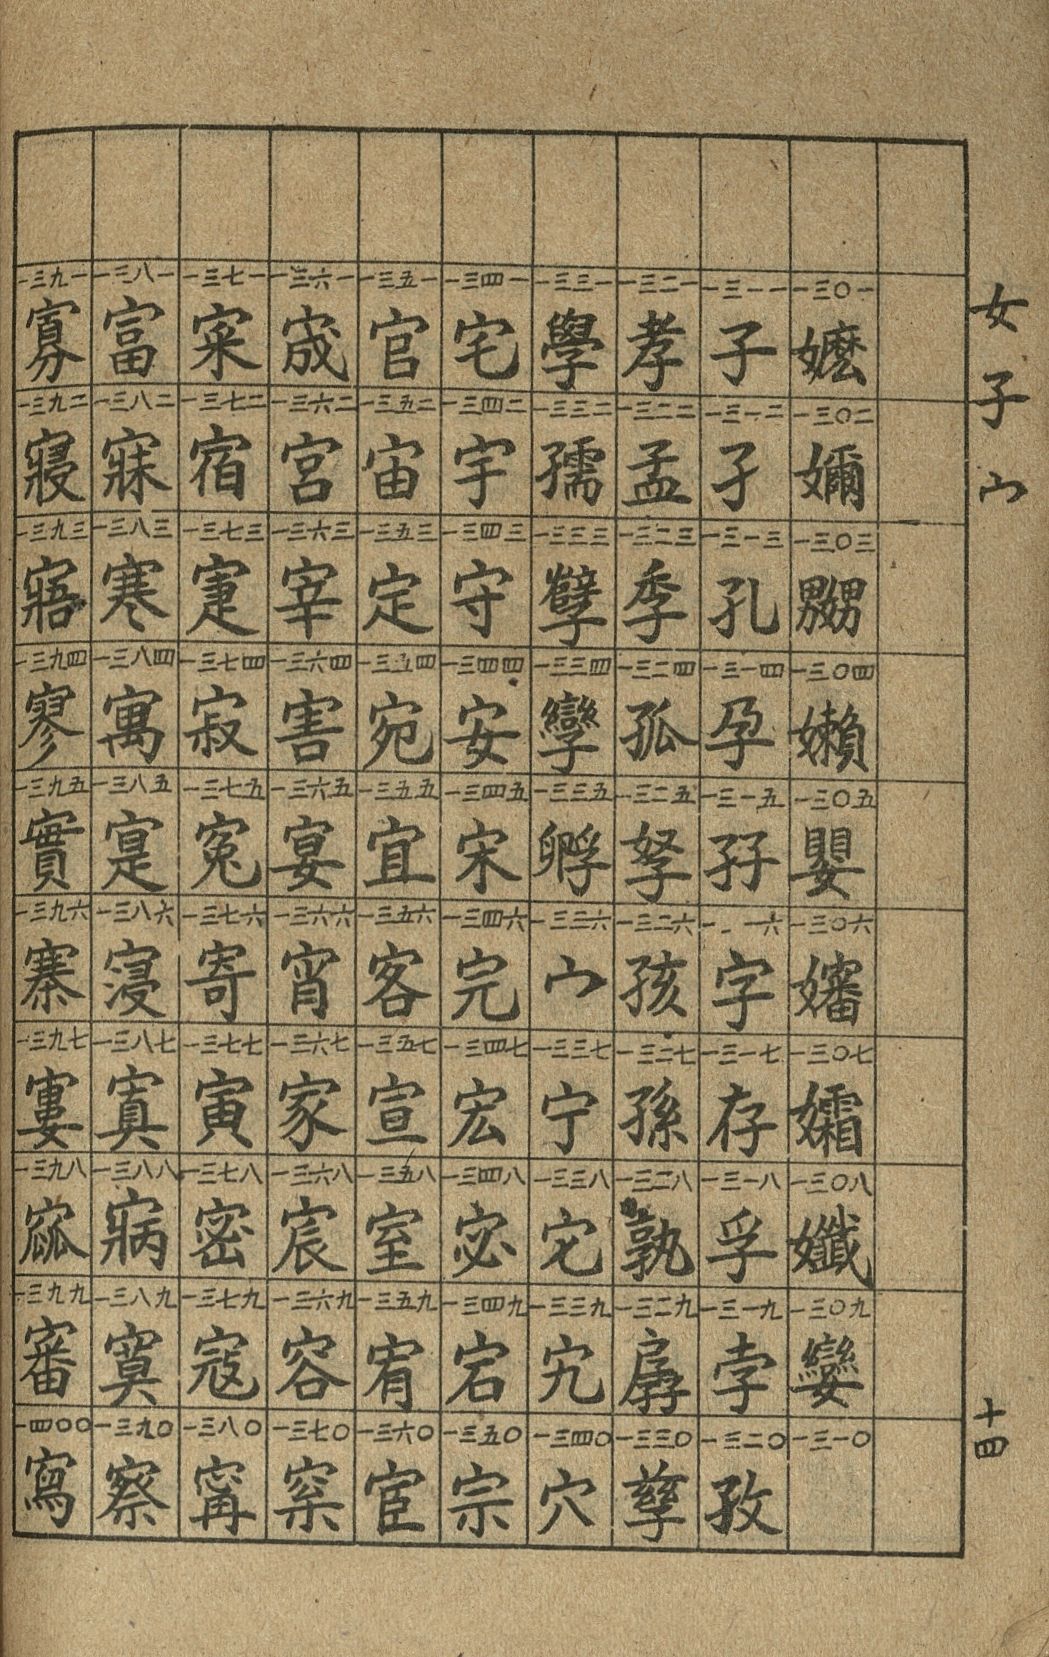 女子宀
十四
一三〇一 嬤
一三〇二 嬭
一三〇三 嬲
一三〇四 嬾
一三〇五 嬰
一三〇六 嬸
一三〇七 孀
一三〇八 孅
一三〇九 孌
一三一〇
一三一一 子
一三一二 孑
一三一三 孔
一三一四 孕
一三一五 孖
一 一六 字
一三一七 存
一三一八 孚
一三一九 孛
一三二〇 孜
一三二一 孝
一三二二 孟
一三二三 季
一三二四 孤
一三二五 孥
一三二六 孩
一三二七 孫
一三二八 孰
一三二九 孱
一三三〇 孳
一三三一 學
一三三二 孺
一三三三 孽
一三三四 孿
一三三五 孵
一三三六 宀
一三三七 宁
一三三八 它
一三三九 宄
一三四〇 穴
一三四一 宅
一三四二 宇
一三四三 守
一三四四 安
一三四五 宋
一三四六 完
一三四七 宏
一三四八 宓
一三四九 宕
一三五〇 宗
一三五一 官
一三五二 宙
一三五三 定
一三五四 宛
一三五五 宜
一三五六 客
一三五七 宣
一三五八 室
一三五九 宥
一三六〇 宦
一三六一 宬
一三六二 宮
一三六三 宰
一三六四 害
一三六五 宴
一三六六 宵
一三六七 家
一三六八 宸
一三六九 容
一三七〇 寀
一三七一 寀
一三七二 宿
一三七三 寁
一三七四 寂
一三七五 寃
一三七六 寄
一三七七 寅
一三七八 密
一三七九 寇
一三八〇 甯
一三八一 富
一三八二 寐
一三八三 寒
一三八四 寓
一三八五 寔
一三八六 寖
一三八七 寘
一三八八 寎
一三八九 寞
一三九〇 察
一三九一 寡
一三九二 寢
一三九三 寤
一三九四 寥
一三九五 實
一三九六 寨
一三九七 寠
一三九八
一三九九 審
一四〇〇 寫